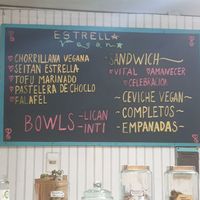 ESTRELLA
vegan
CHORRILLANA VEGANA
SEITAN ESTRELLA
TOFU MARINADO
PASTELERA DE CHOCLO
FALAFEL
BOWLS
LICAN
INTI
SANDWICH
VITAL
AMANECER
CELEBRACION
CEVICHE VEGAN
COMPLETOS
EMPANADAS